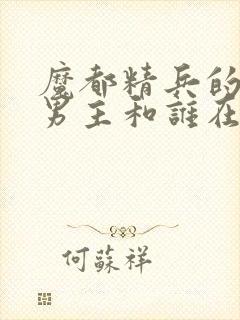 魔都精兵的
男主和誰在
何蘇祥